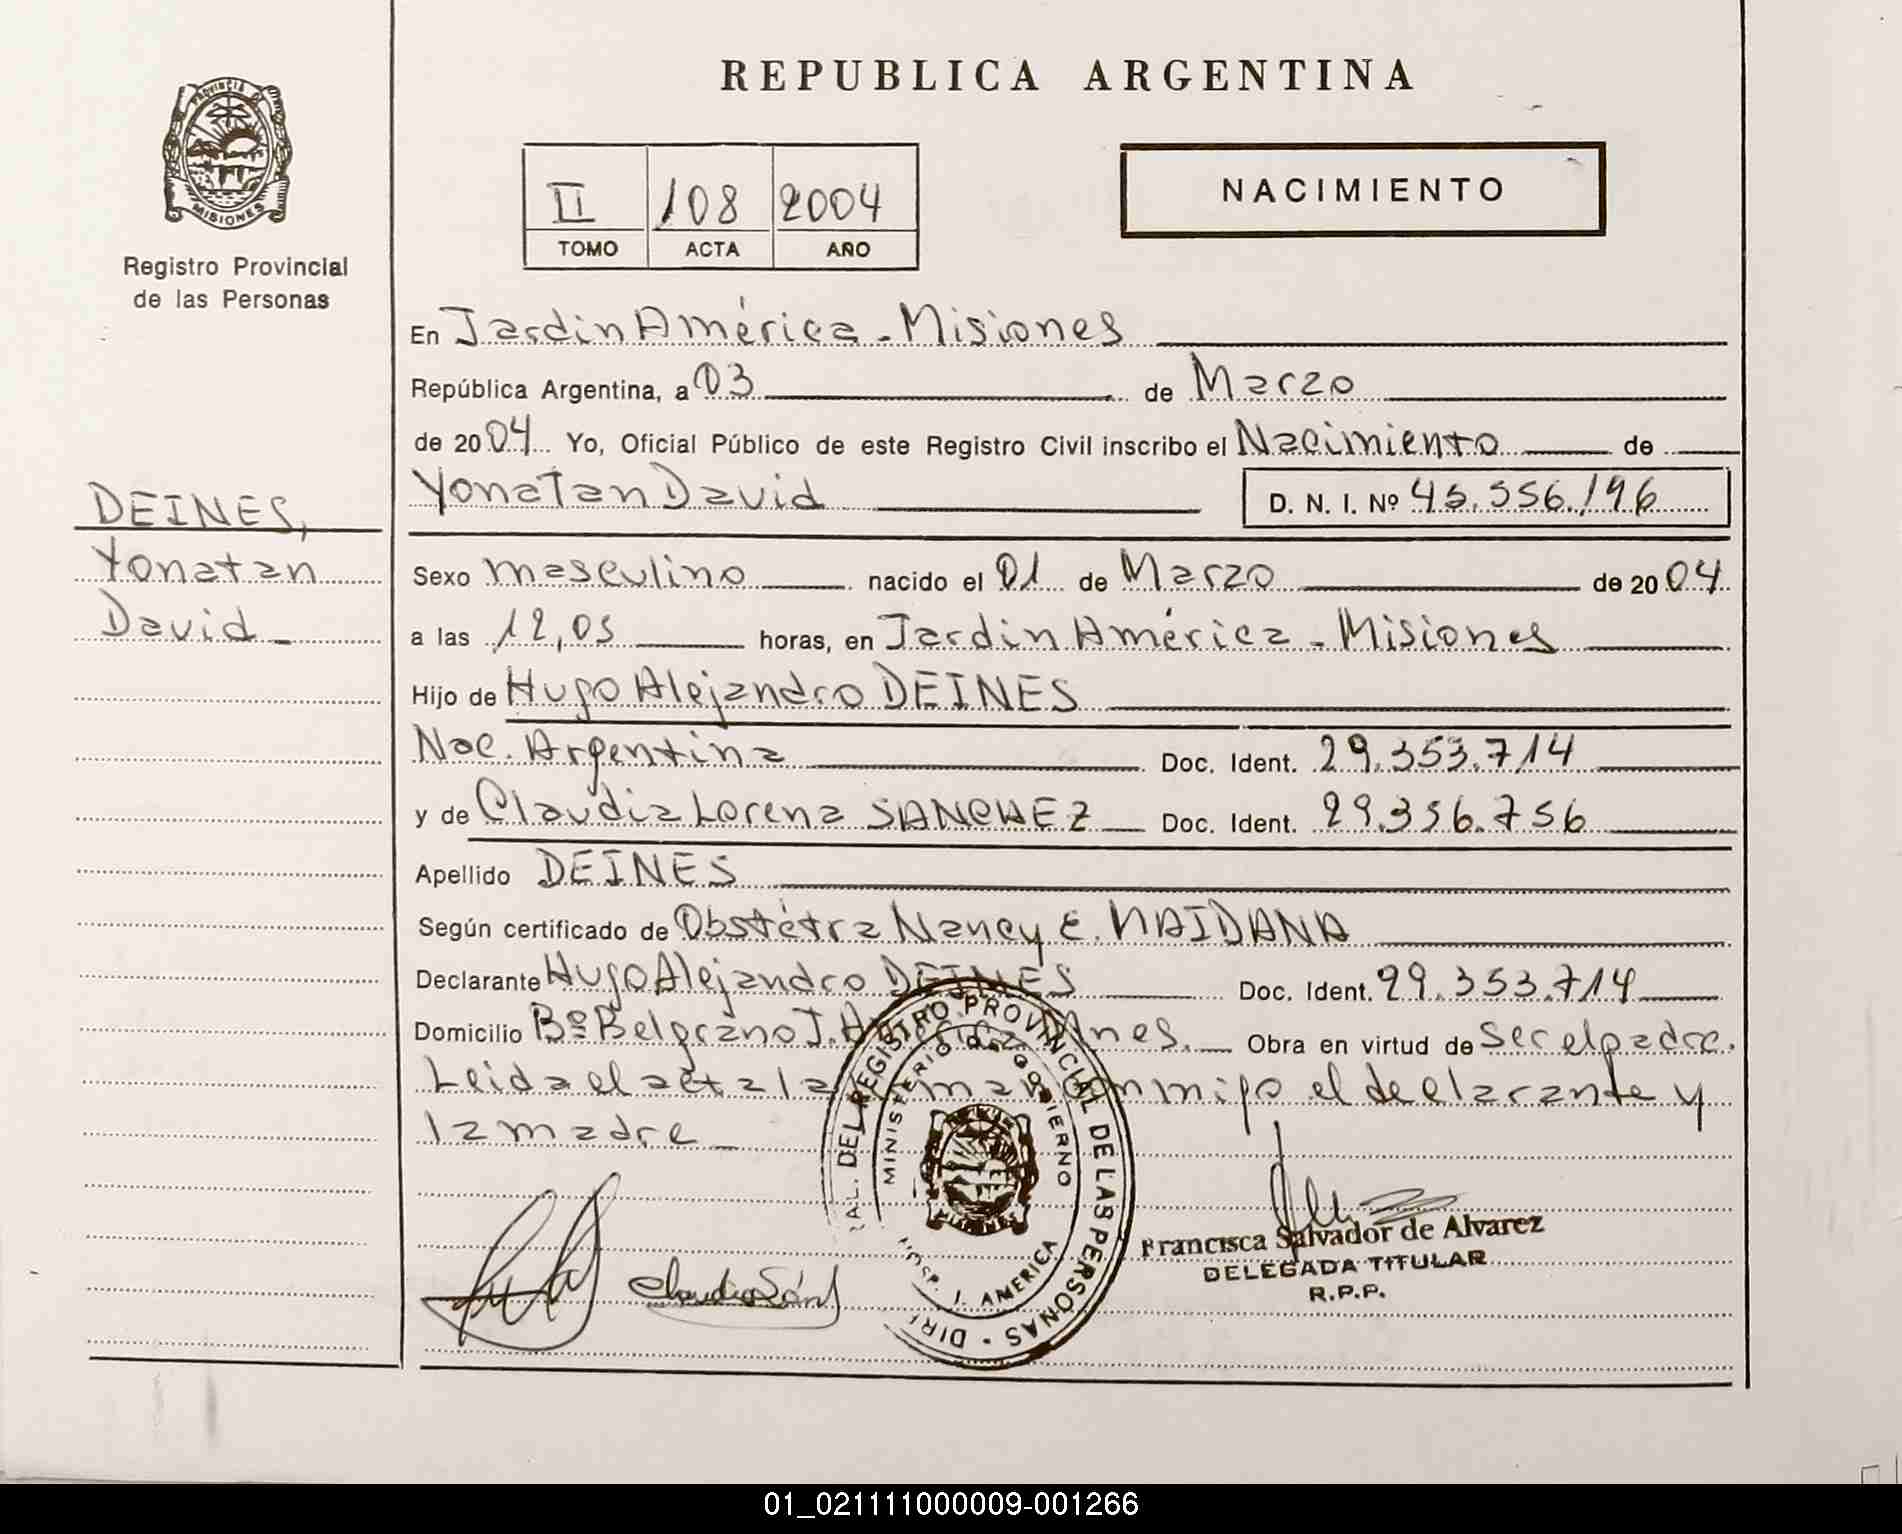 REPUBLICA ARGENTINA
PROVINCIA DE
MISIONES
Registro Provincial
de las Personas
II 108 2004
TOMO ACTA AÑO
NACIMIENTO
En Jardin América - Misiones
República Argentina, a 03 de Marzo
de 2004 Yo, Oficial Público de este Registro Civil inscribo el Nacimiento de
Yonatan David D. N. I. Nº 45.556.196
DEINES,
Yonatan
David
Sexo masculino nacido el 01 de Marzo de 2004
a las 12,05 horas, en Jardin América - Misiones
Hijo de Hugo Alejandro DEINES
Nac. Argentina Doc. Ident. 29.353.714
y de Claudia Lorena SANCHEZ Doc. Ident. 29.356.756
Apellido DEINES
Según certificado de Obstétra Nancy E. MAIDANA
Declarante Hugo Alejandro DEINES Doc. Ident. 29.353.714
Domicilio Bº Belgrano J. América Mnes. Obra en virtud de ser el padre.
Leida el acta la firman conmigo el declarante y
la madre
DEL REGISTRO PROVINCIAL DE LAS PERSONAS
MINISTERIO DE GOBIERNO
MISIONES
HOSP. J. AMERICA
Claudia Sánz
Francisca Salvador de Alvarez
DELEGADA TITULAR
R.P.P.
01_021111000009-001266